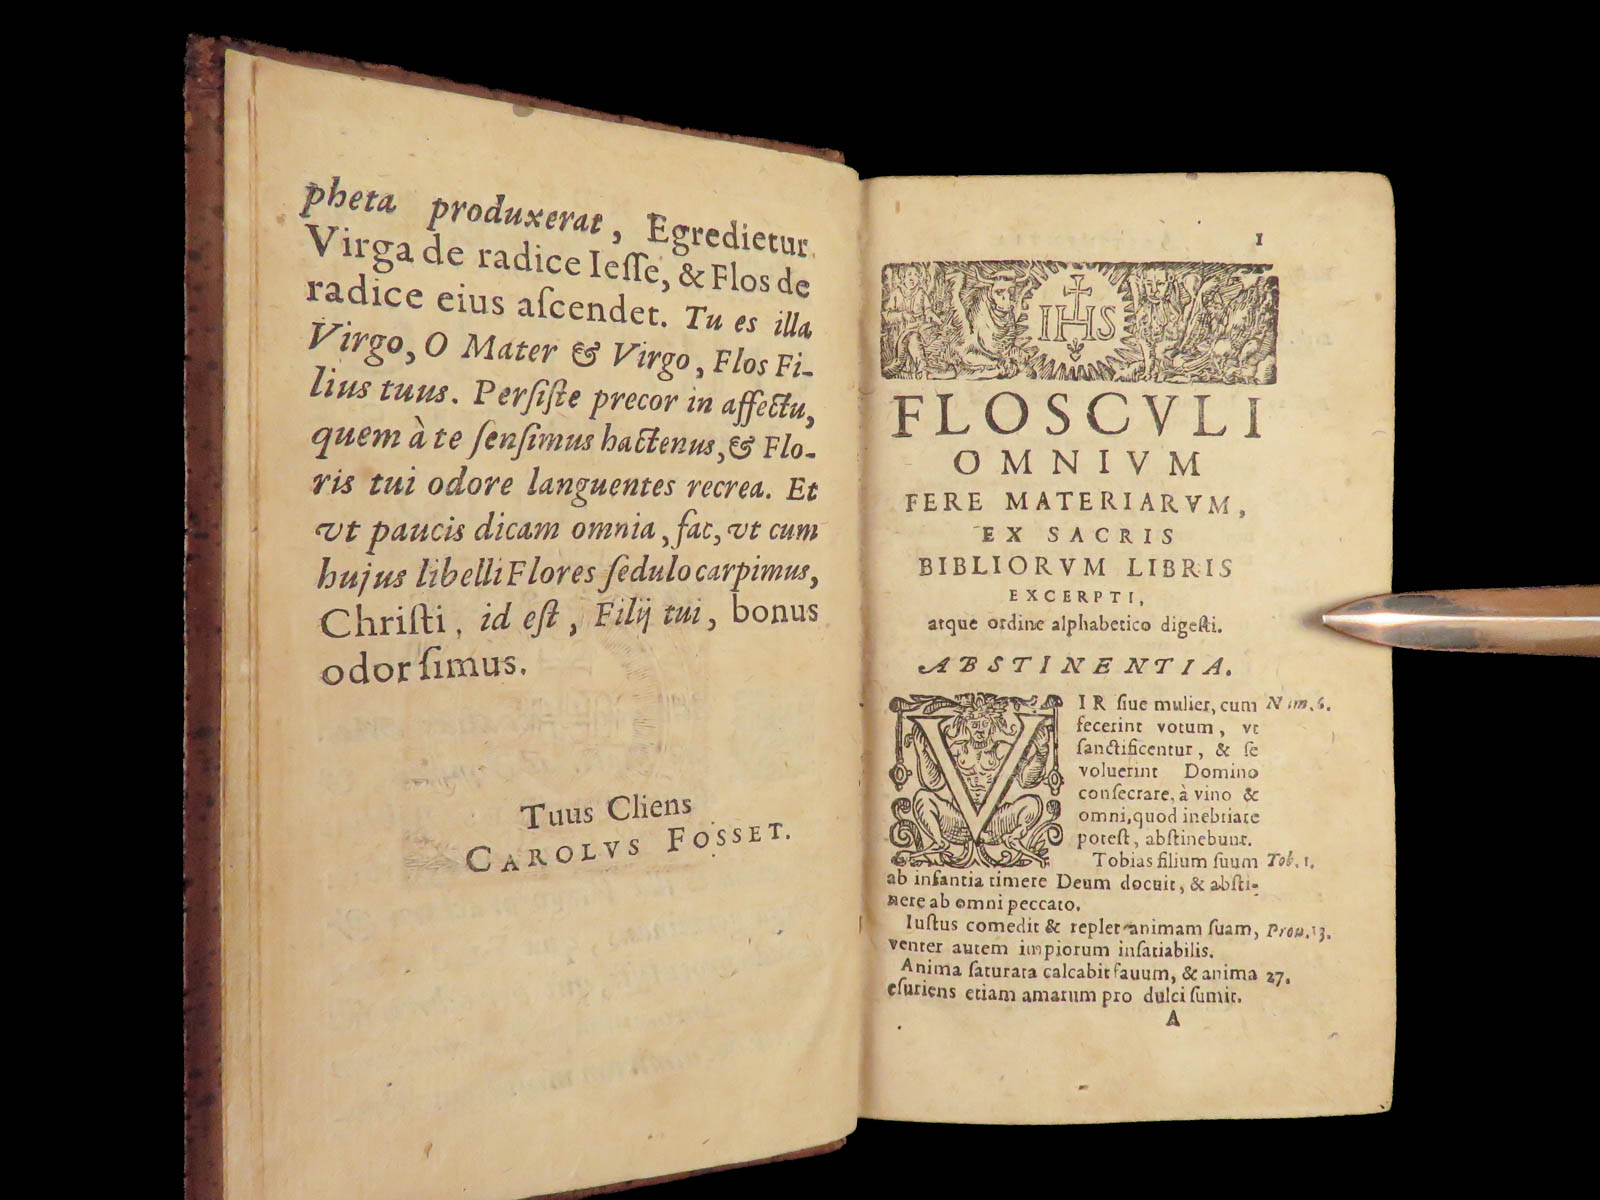 pheta produxerat, Egredietur
Virga de radice Ieſſe, & Flos de
radice eius aſcendet. Tu es illa
Virgo, O Mater & Virgo, Flos Fi-
lius tuus. Perſiſte precor in affectu,
quem à te ſenſimus hactenus, & Flo-
ris tui odore languentes recrea. Et
vt paucis dicam omnia, fac, vt cum
hujus libelli Flores ſedulo carpimus,
Chriſti, id eſt, Filij tui, bonus
odor ſimus.
Tuus Cliens
CAROLVS FOSSET.
1
IHS
FLOSCVLI
OMNIVM
FERE MATERIARVM,
EX SACRIS
BIBLIORVM LIBRIS
EXCERPTI,
atque ordine alphabetico digeſti.
ABSTINENTIA.
VIR ſiue mulier, cum Num. 6.
fecerint votum, vt
ſanctificentur, & ſe
voluerint Domino
conſecrare, à vino &
omni, quod inebriare
poteſt, abſtinebunt.
Tobias filium ſuum Tob. 1.
ab infantia timere Deum docuit, & abſti-
nere ab omni peccato.
Iuſtus comedit & replet animam ſuam, Prou. 13.
venter autem impiorum inſatiabilis.
Anima ſaturata calcabit fauum, & anima 27.
eſuriens etiam amarum pro dulci ſumit.
A